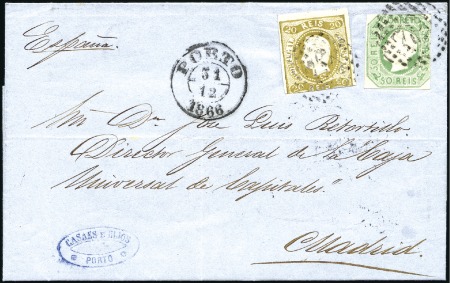 España.
PORTO
31
12
1866
20 REIS 20
50 REIS
Sñr. Dn. José Luis Retortillo
Director General de la Caja
Universal de Capitales
Madrid.
PORTO